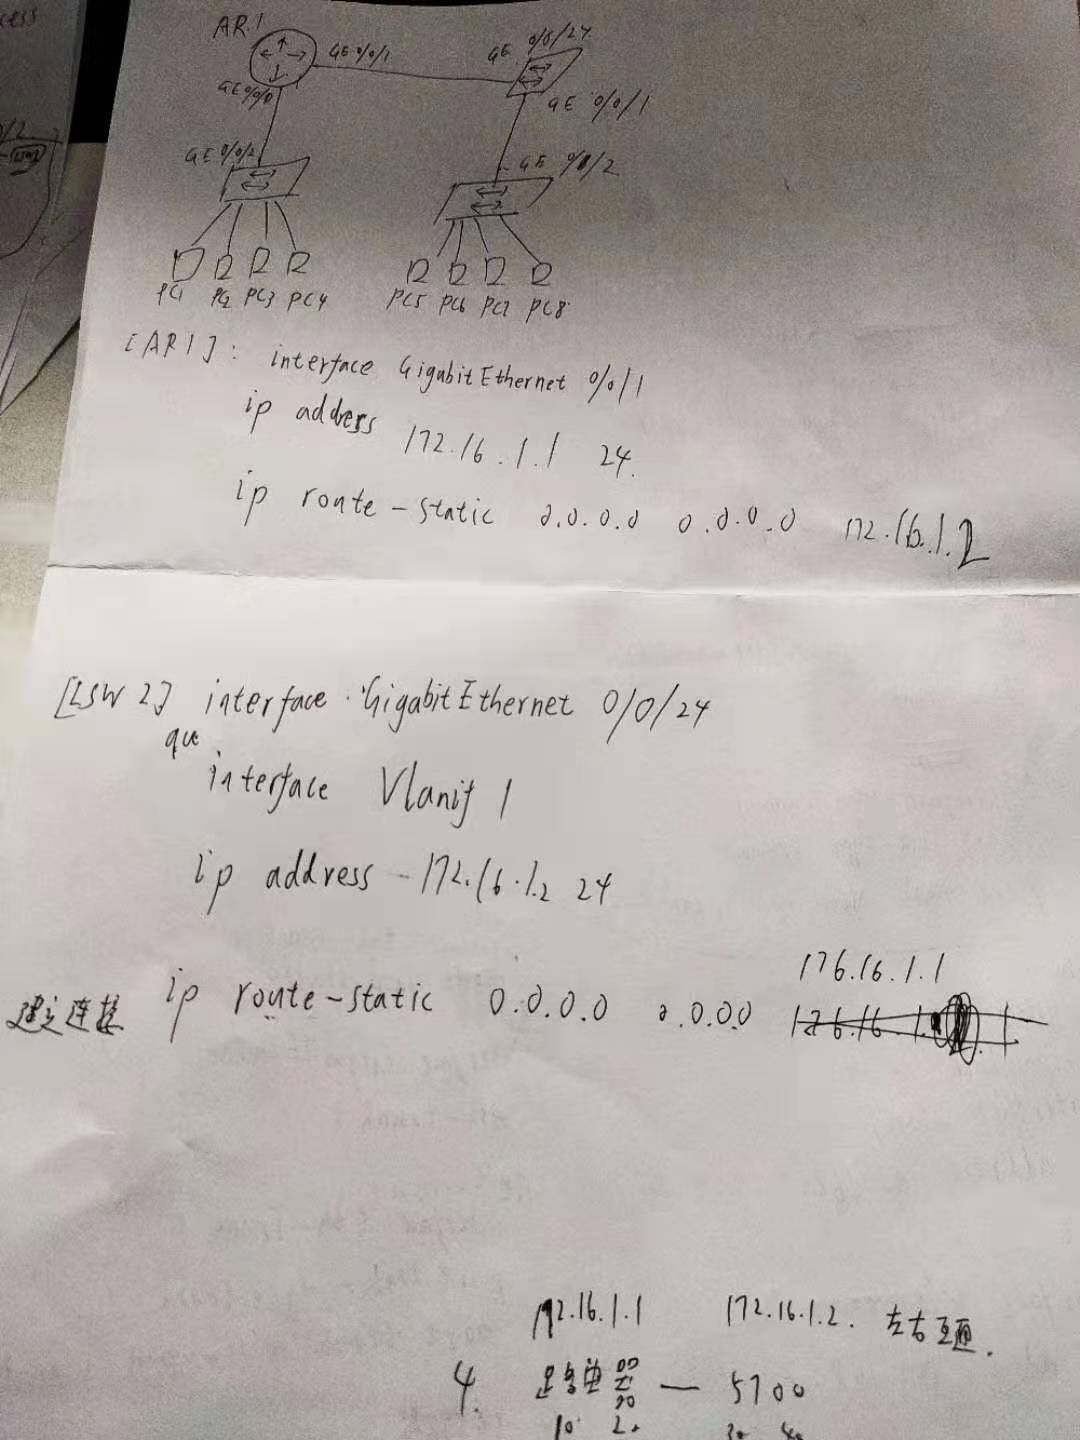 cess
AR1
GE 0/0/1
GE 0/0/24
GE 0/0/0
GE 0/0/1
GE 0/0/2
GE 0/0/2
PC1 PC2 PC3 PC4 PC5 PC6 PC7 PC8
[AR1]: interface GigabitEthernet 0/0/1
ip address 172.16.1.1 24.
ip route-static 0.0.0.0 0.0.0.0 172.16.1.2
[LSW2] interface GigabitEthernet 0/0/24
qu
interface Vlanif 1
ip address 172.16.1.2 24
176.16.1.1
建立连接 ip route-static 0.0.0.0 0.0.0.0
172.16.1.1 172.16.1.2. 左右互通.
4. — 5700
10 20 30 40